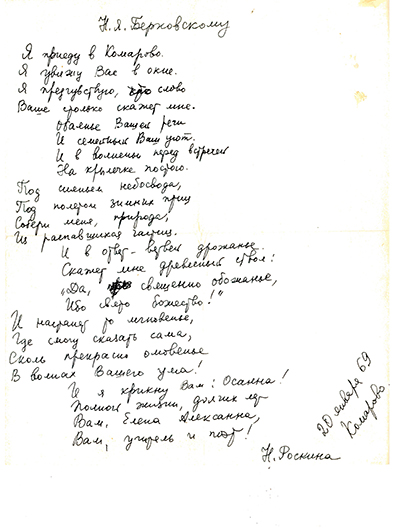 Н.Я. Берковскому
Я приеду в Комарово.
Я увижу Вас в окне.
Я предчувствую, слово
Ваше столько скажет мне.
Обаянье Вашей речи
И семейный Ваш уют.
И в волненьи перед встречей
На крылечке постою.
Под сияньем небосвода,
Под полетом зимних птиц
Собери меня, природа,
Из распавшихся частиц.
И в ответ - ветвей дрожанье
Скажет мне древесный ствол:
"Да, священно обожанье,
Ибо свято божество!"
И настанет то мгновенье,
Где смогу сказать сама,
Сколь прекрасно омовенье
В волнах Вашего ума!
И я крикну Вам: Осанна!
Полной жизни, долгих лет
Вам, Елена Алексанна,
Вам, учитель и поэт!
Н. Роскина
20 января 69
Комарово